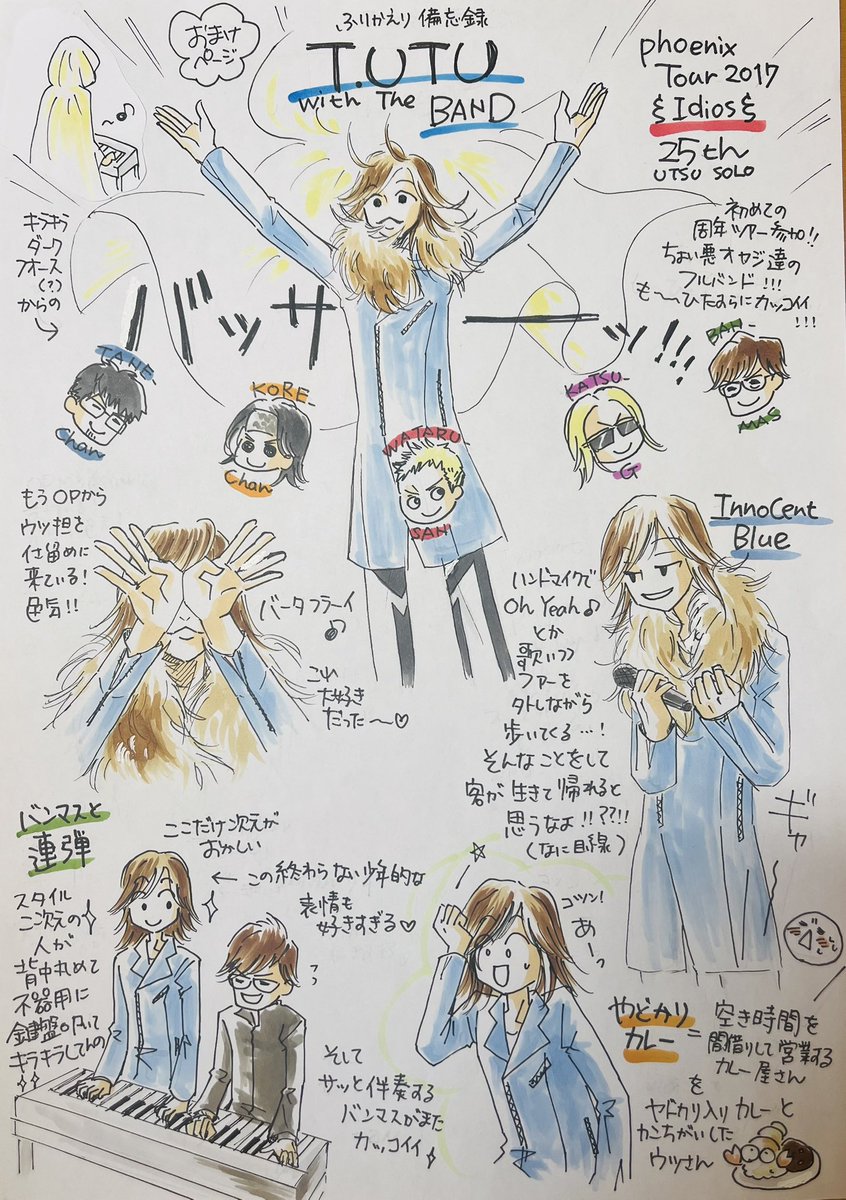 おまけ
ページ
ふりかえり 備忘録
T.UTU
with The BAND
phoenix
Tour 2017
Idios
25th
UTSU SOLO
キラキラ
ダーク
フォース
(?)
からの
バッサーーッ!!!
初めての
周年ツアー参加!!
ちょい悪オヤジ達の
フルバンド!!!
も〜〜ひたすらにカッコイイ
!!!
TANE-
Chan
KORE-
Chan
WATARU-
SAN
KATSU-
G
BAN-
MAS
もうOPから
ウツ担を
仕留めに
来ている!
色気!!
バータフラーイ♪
これ
大好き
だった〜♡
InnoCent
Blue
ハンドマイクで
Oh Yeah♪
とか
歌いつつ
ファーを
外しながら
歩いてくる…!
そんなことをして
客が生きて帰れると
思うなよ!!??!!
(なに目線)
ギャ
バンマスと
連弾
ここだけ次元が
おかしい
← この終わらない少年的な
表情も
好きすぎる♡
スタイル
二次元の
人が
背中丸めて
不器用に
鍵盤叩いて
キラキラしてんの
そして
サッと伴奏する
バンマスがまた
カッコイイ
コツン!
あーっ
やどかり
カレー
= 空き時間を
間借りして営業する
カレー屋さん
を
ヤドカリ入りカレーと
かんちがいした
ウツさん